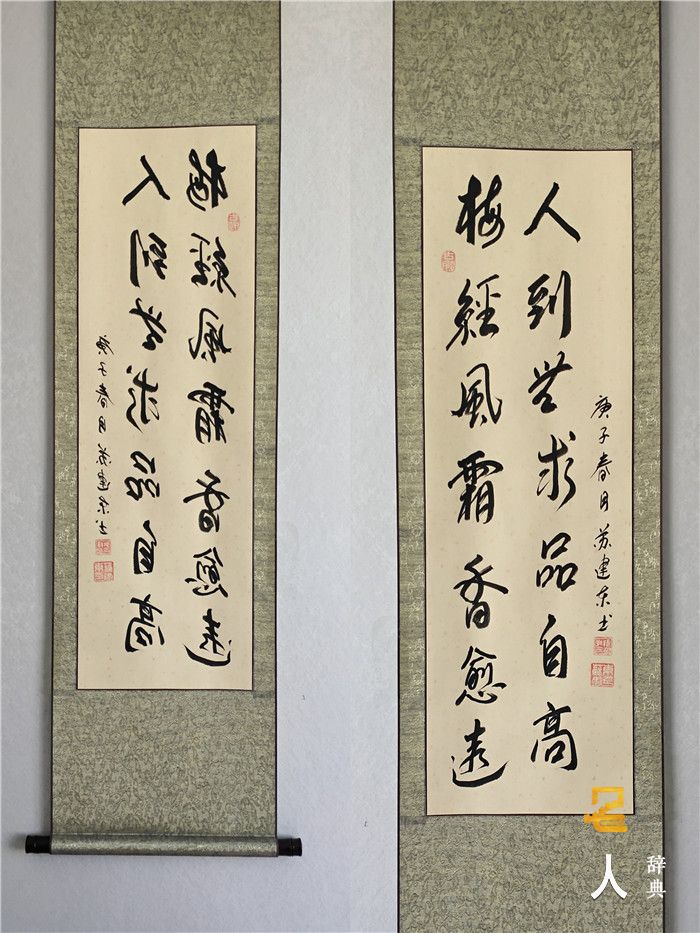 梅經風霜香愈遠
人到無求品自高
庚子春月苏建东书
梅經風霜香愈遠
人到無求品自高
庚子春月苏建东书
名人
辞典